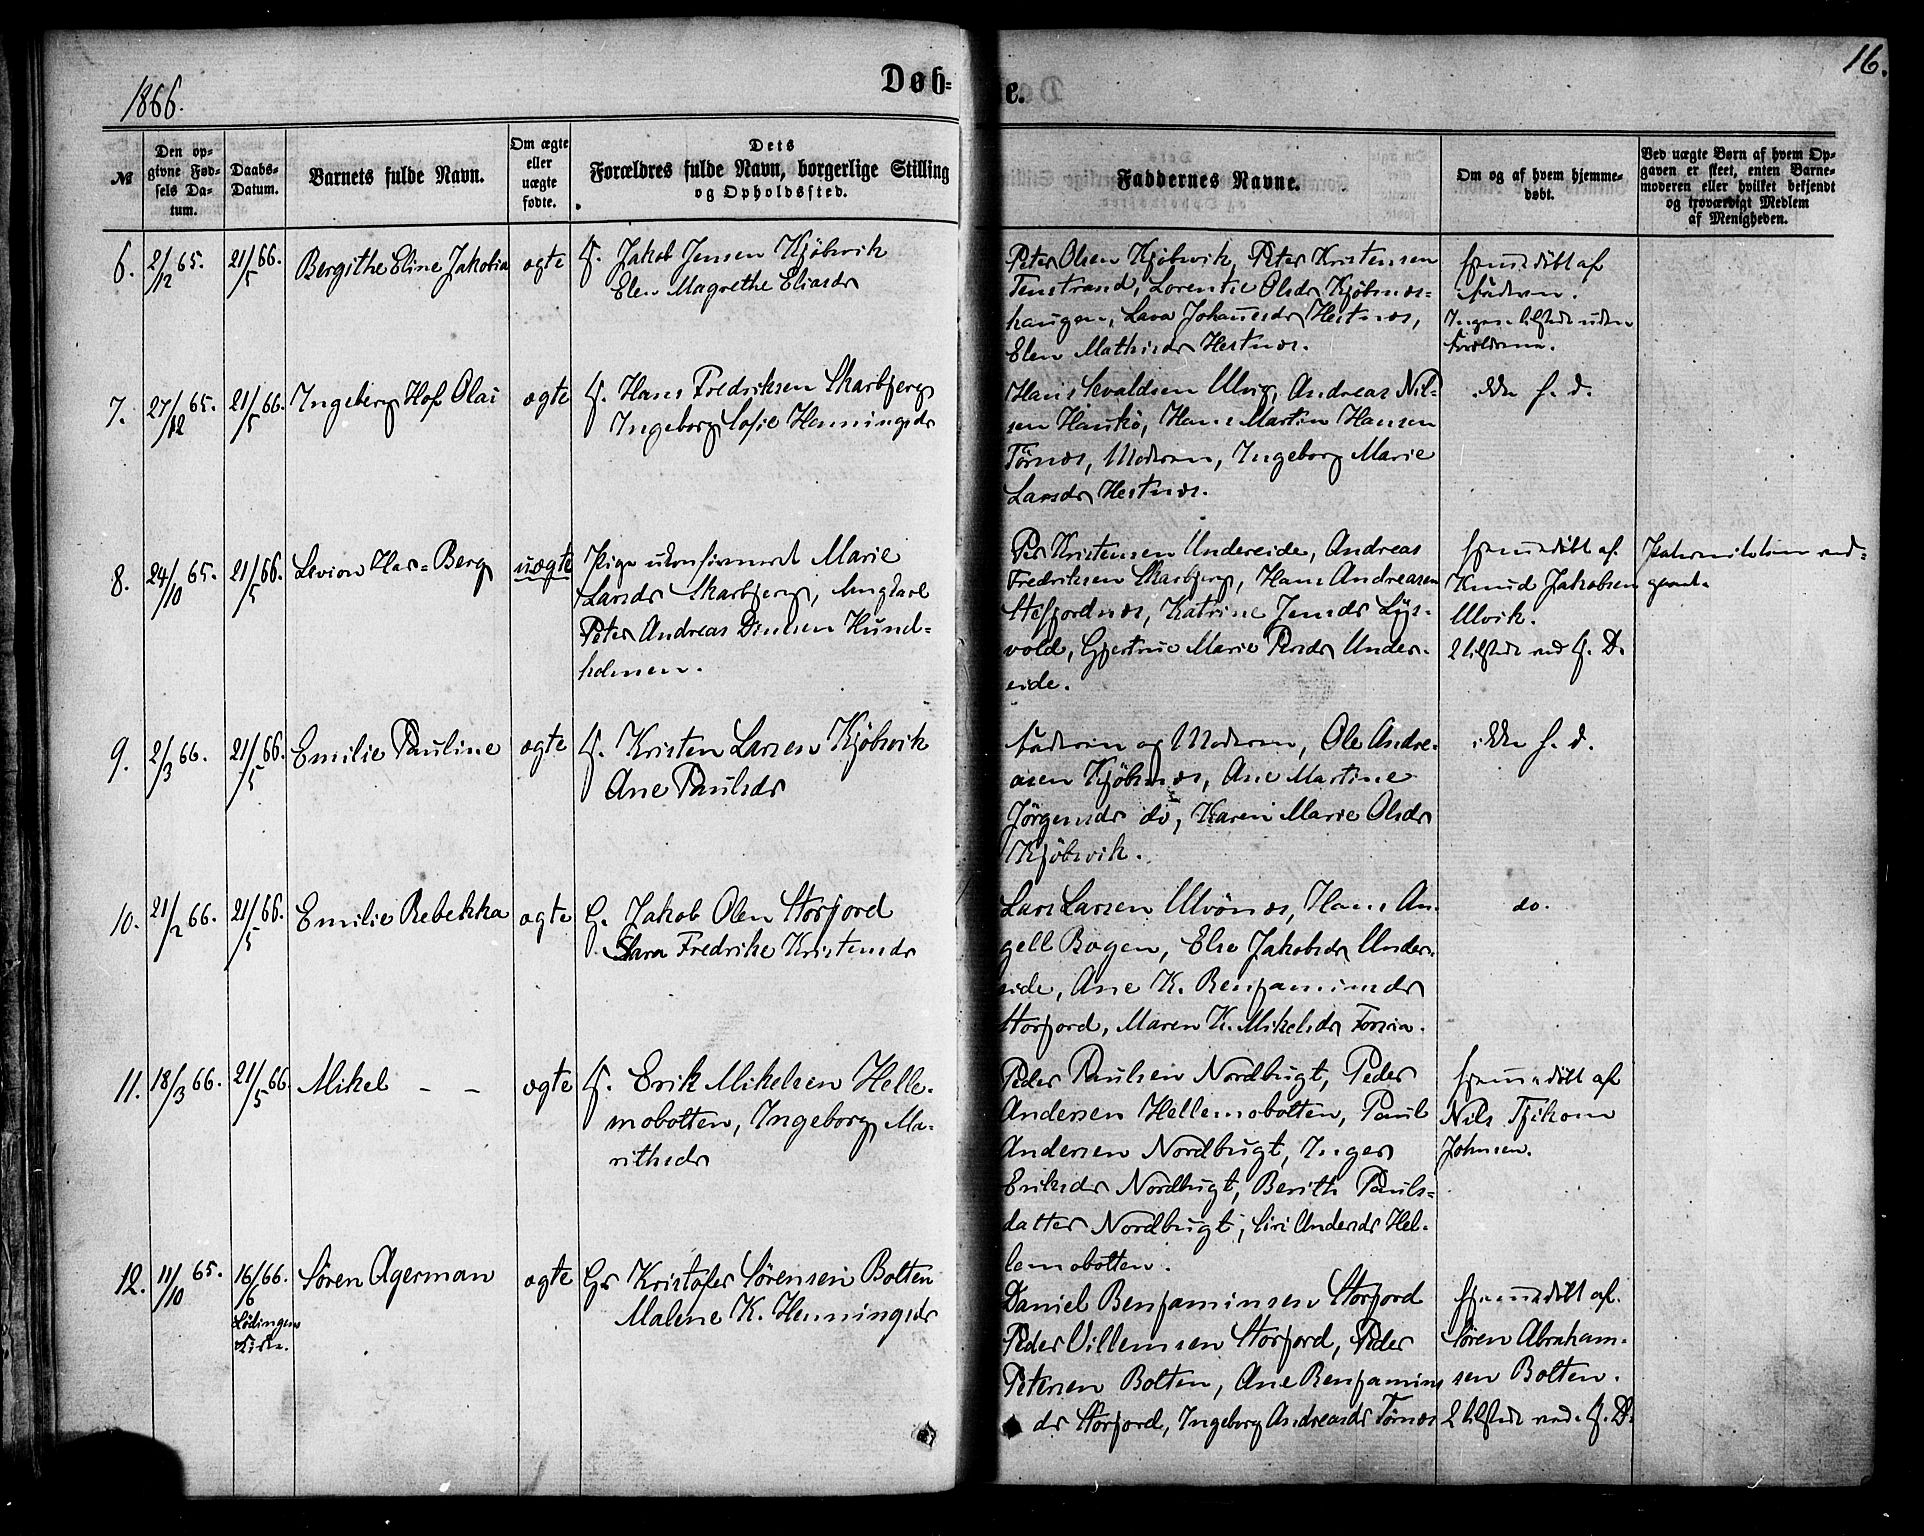 1866.
Døb-
te.
16.
№
Den op-
givne Fød-
sels Da-
tum.
Daabs-
Datum.
Barnets fulde Navn.
Om ægte
eller
uægte
fødte.
Dets
Forældres fulde Navn, borgerlige Stilling
og Opholdssted.
Faddernes Navne.
Om og af hvem hjemme-
døbt.
Ved uægte Børn af hvem Op-
gaven er skeet, enten Barne-
moderen eller hvilket bekjendt
og troværdigt Medlem
af Menigheden.
6. 2/12 65. 21/5 66. Bergithe Eline Jakobia ægte Jakob Jensen Kjöbsvik
Elen Magrethe Eliasdr
Peter Olsen Kjöbsvik, Peter Kristensen
Lorentse Olsdr Kjöbsnæs-
haugen, Lava Johansdr Hestnæs,
Elen Mathisdr Hestnæs.
hjemmedöbt af
faderen.
Ingen tilstede uden
Forældrene.
7. 27/12 65. 21/5 66. Ingeberg Hof Olai ægte Hans Fredriksen Skarbjerg
Ingeborg Sofie Henningsdr
Hans Evaldsen Ulvig, Andreas Nil-
sen Haukö, Hans Martin Hansen
Törnæs, Moderen, Ingeborg Marie
Larsdr Hestnæs.
ikke h. d.
8. 24/10 65. 21/5 66. uægte Pige ukonfirmeret Marie
Larsdr Skarbjerg, Ungkarl
Peter Andreas Hund-
holmen.
Per Kristensen Undereide, Andreas
Fredriksen Skarbjerg, Hans Andreasen
Stefjordnæs, Katrine Jensdr Lys-
vold, Gjertrue Marie Persdr Under-
eide.
hjemmedöbt af
Knud Jakobsen
Ulvik.
2 tilstede ved Hj. D.
Paterniteten ved-
gaaet.
9. 2/3 66. 21/5 66. Emilie Pauline ægte Kristen Larsen Kjöbsvik
Ane Paulsdr
Faderen og Moderen, Ole Andre-
asen Kjöbsnæs, Ane Martine
Jörgensdr do, Karen Marie Olsdr
Kjöbsvik.
ikke h. d.
10. 21/2 66. 21/5 66. Emilie Rebekka ægte G. Jakob Olsen Storfjord
Sara Fredrike Kristensdr
Lars Larsen Ulvönæs, Hans An-
gell Bogen, Else Jakobsdr Under-
eide, Ane K. Benjaminsdr
Storfjord, Maren K. Mikelsdr
do.
11. 18/3 66. 21/5 66. Mikel - - ægte Erik Mikelsen Helle-
mobotten, Ingeborg Ma-
rithsdr
Peder Paulsen Nordbugt, Peder
Andersen Hellemobotten, Paul
Andersen Nordbugt, Inger
Eriksdr Nordbugt, Berith Pauls-
datter Nordbugt, Siri Andersdr Hel-
lemobotten.
hjemmedöbt af
Nils Tjikom
Johnsen.
12. 11/10 65. 16/6 66. Lödingens
Kirke.
Sören Agerman ægte Kristofer Sörensen Botten
Malene K. Henningsdr
Daniel Benjaminsen Storfjord
Peder Villemsen Storfjord, Peder
Petersen Botten, Ane Benjamins
dr Storfjord, Ingeborg Andreasdr Törnæs
hjemmedöbt af
Sören Abraham-
sen Botten.
2 tilstede ved Hj. D.